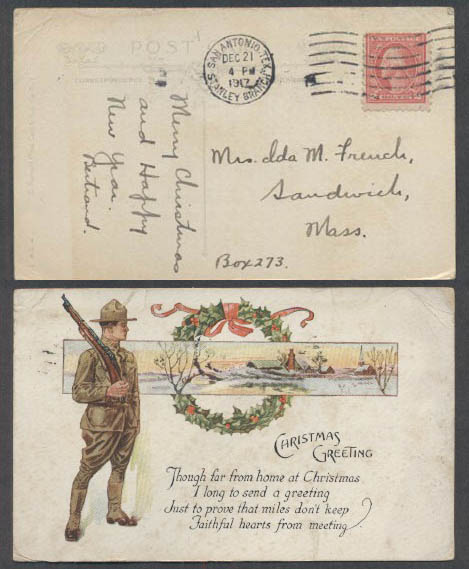 POST
CORRESPONDENCE
SAN ANTONIO, TEX.
DEC 21
4 PM
1917
STANLEY BRANCH
Merry Christmas
and Happy
New Year.
Bertrand.
Mrs. Ida M. French,
Sandwich,
Mass.
Box 273.
CHRISTMAS
GREETING
Though far from home at Christmas
I long to send a greeting
Just to prove that miles don't keep
Faithful hearts from meeting